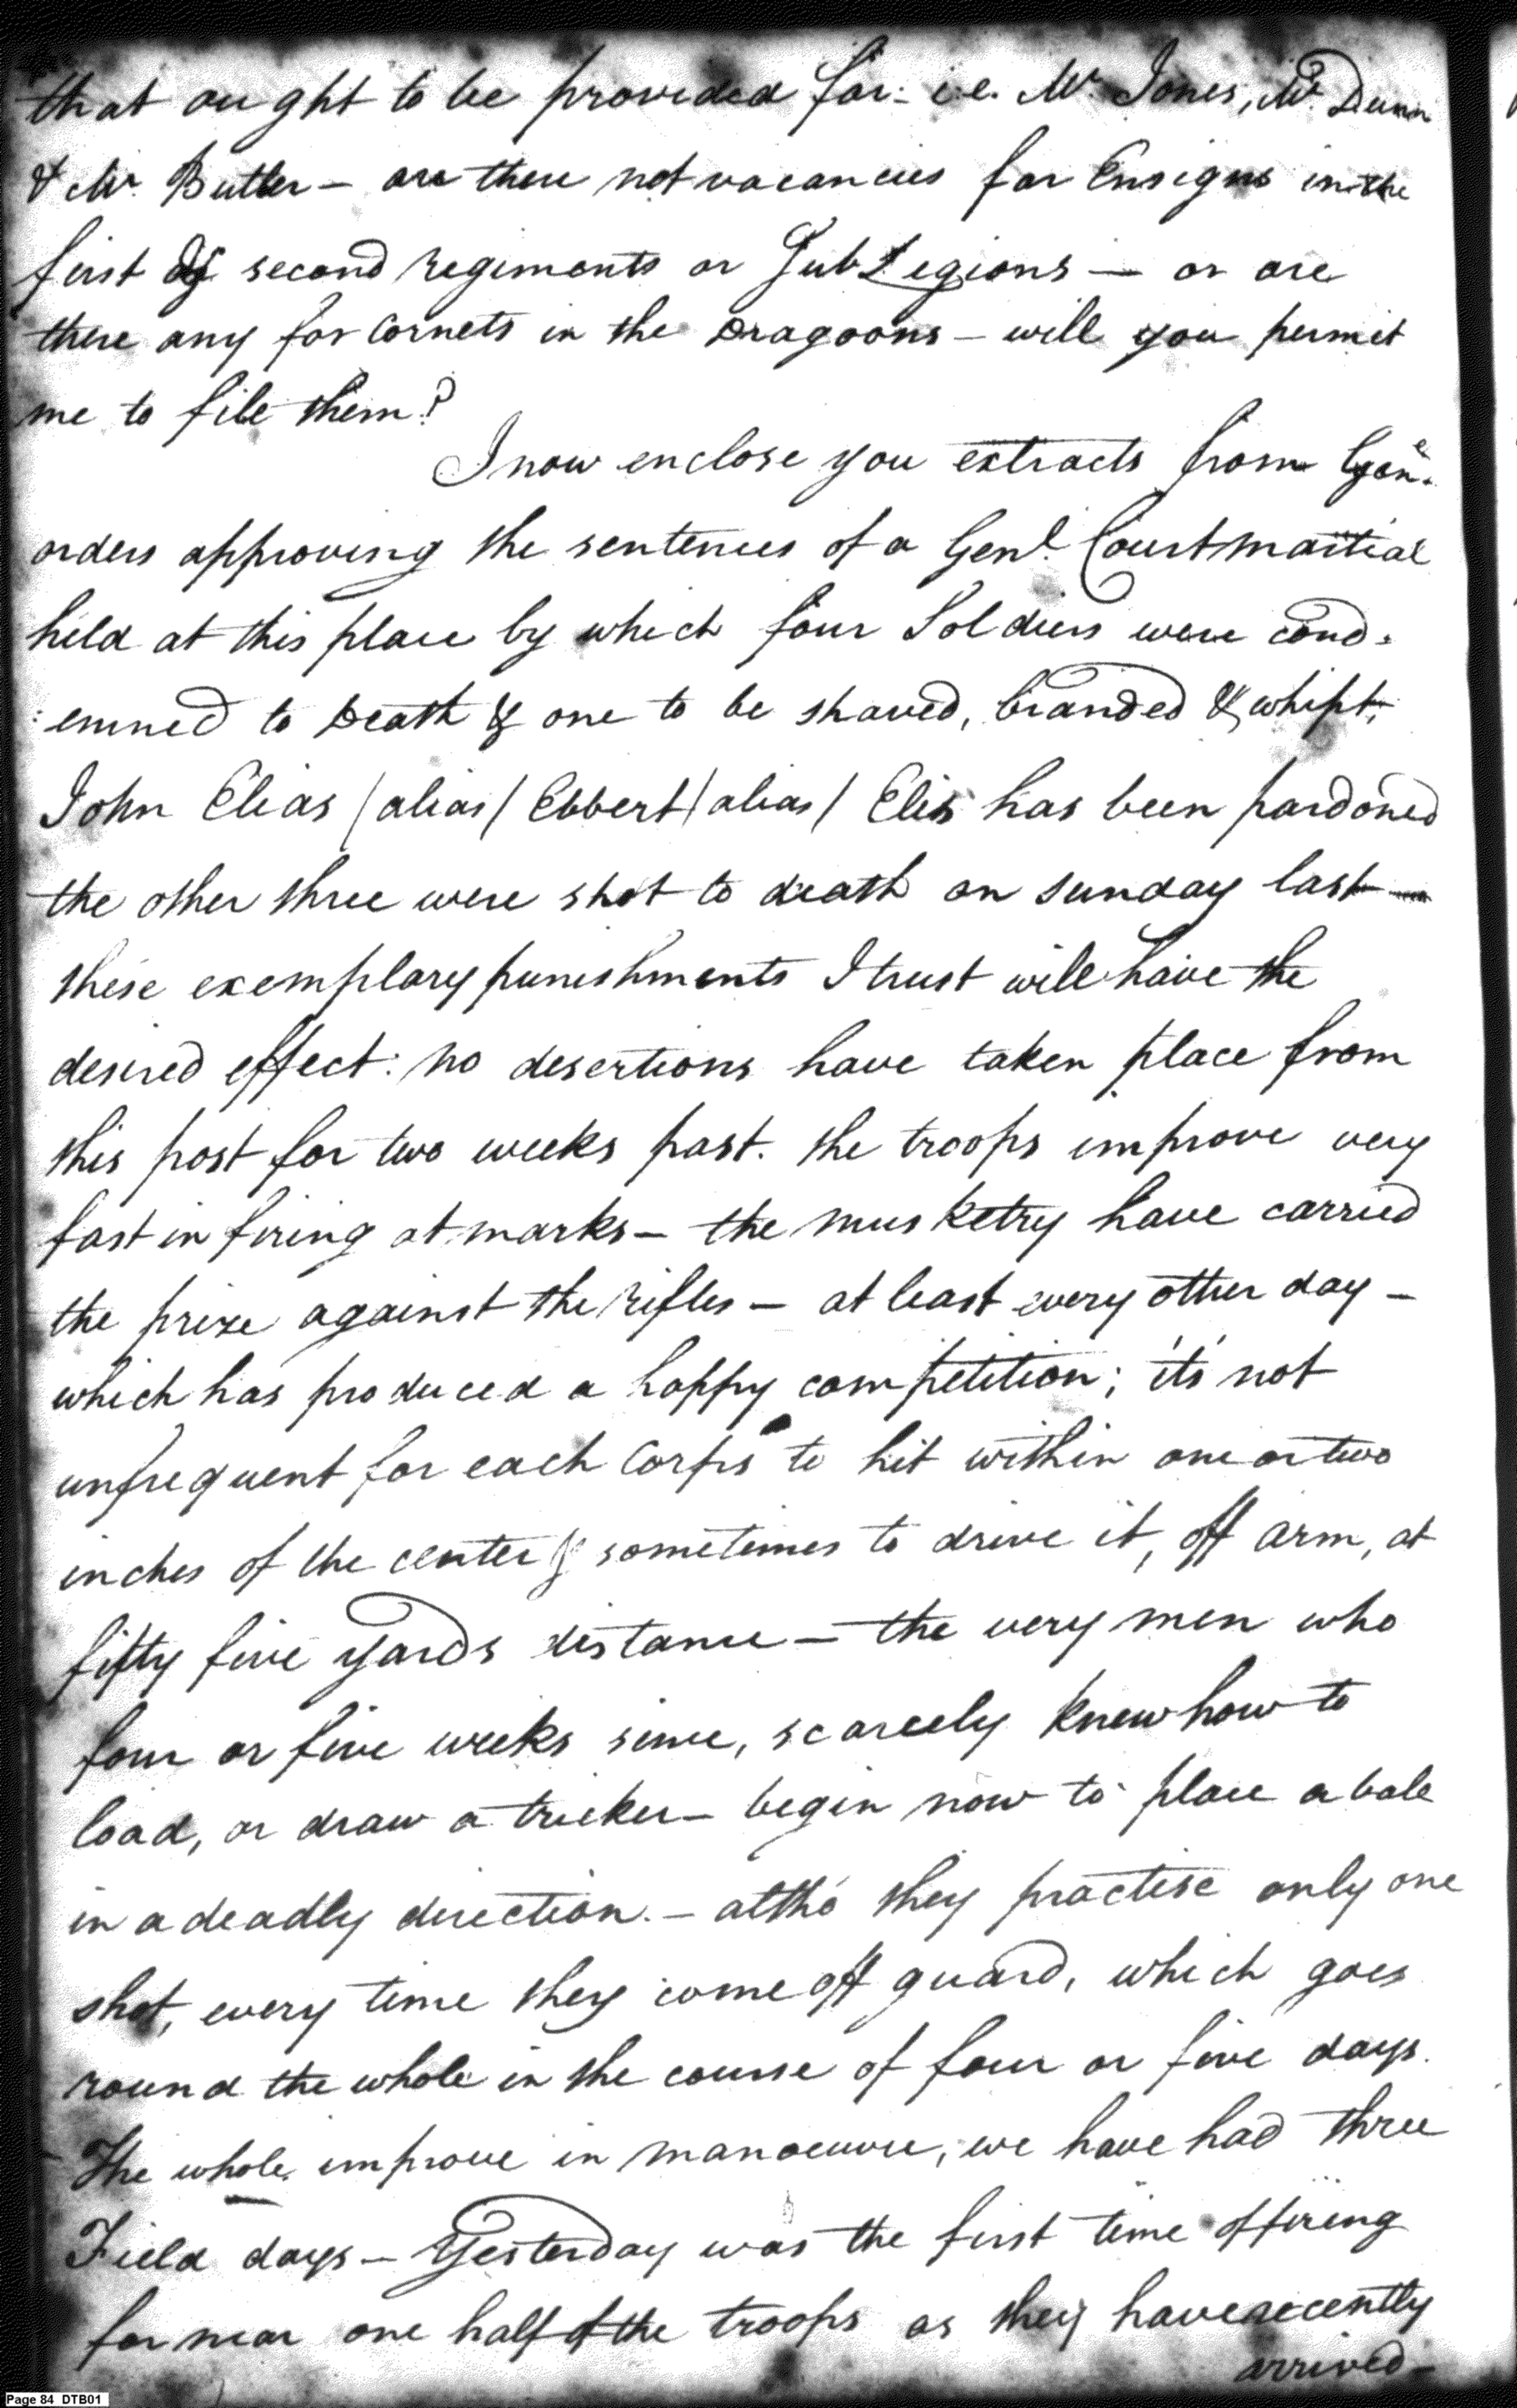 that ought to be provided for: i.e. Mr. Jones, Mr. Dunn
& Mr. Butler – are there not vacancies for Ensigns in the
first & second regiments or Sub Legions — or are
there any for Cornets in the Dragoons – will you permit
me to file them?
I now enclose you extracts from Gen.
orders approving the sentences of a Genl. Court martial
held at this place by which four Soldiers were cond-
:emned to Death & one to be shaved, branded & whipt,
John Elias /alias/ Ebbert /alias/ Elis has been pardoned
the other three were shot to death on sunday last —
these exemplary punishments I trust will have the
desired effect: no desertions have taken place from
this post for two weeks past. the troops improve very
fast in firing at marks – the musketry have carried
the prize against the rifles – at least every other day –
which has produced a happy competition; it's not
unfrequent for each Corps to hit within one or two
inches of the center & sometimes to drive it, off arm, at
fifty five yards distance – the very men who
four or five weeks since, scarcely knew how to
load, or draw a tricker – begin now to place a ball
in a deadly direction. – altho' they practise only one
shot, every time they come off guard, which goes
round the whole in the course of four or five days.
The whole improve in manoeuvre, we have had three
Field days – Yesterday was the first time of firing
for near one half of the troops as they have recently
arrived –
Page 84 DTB01